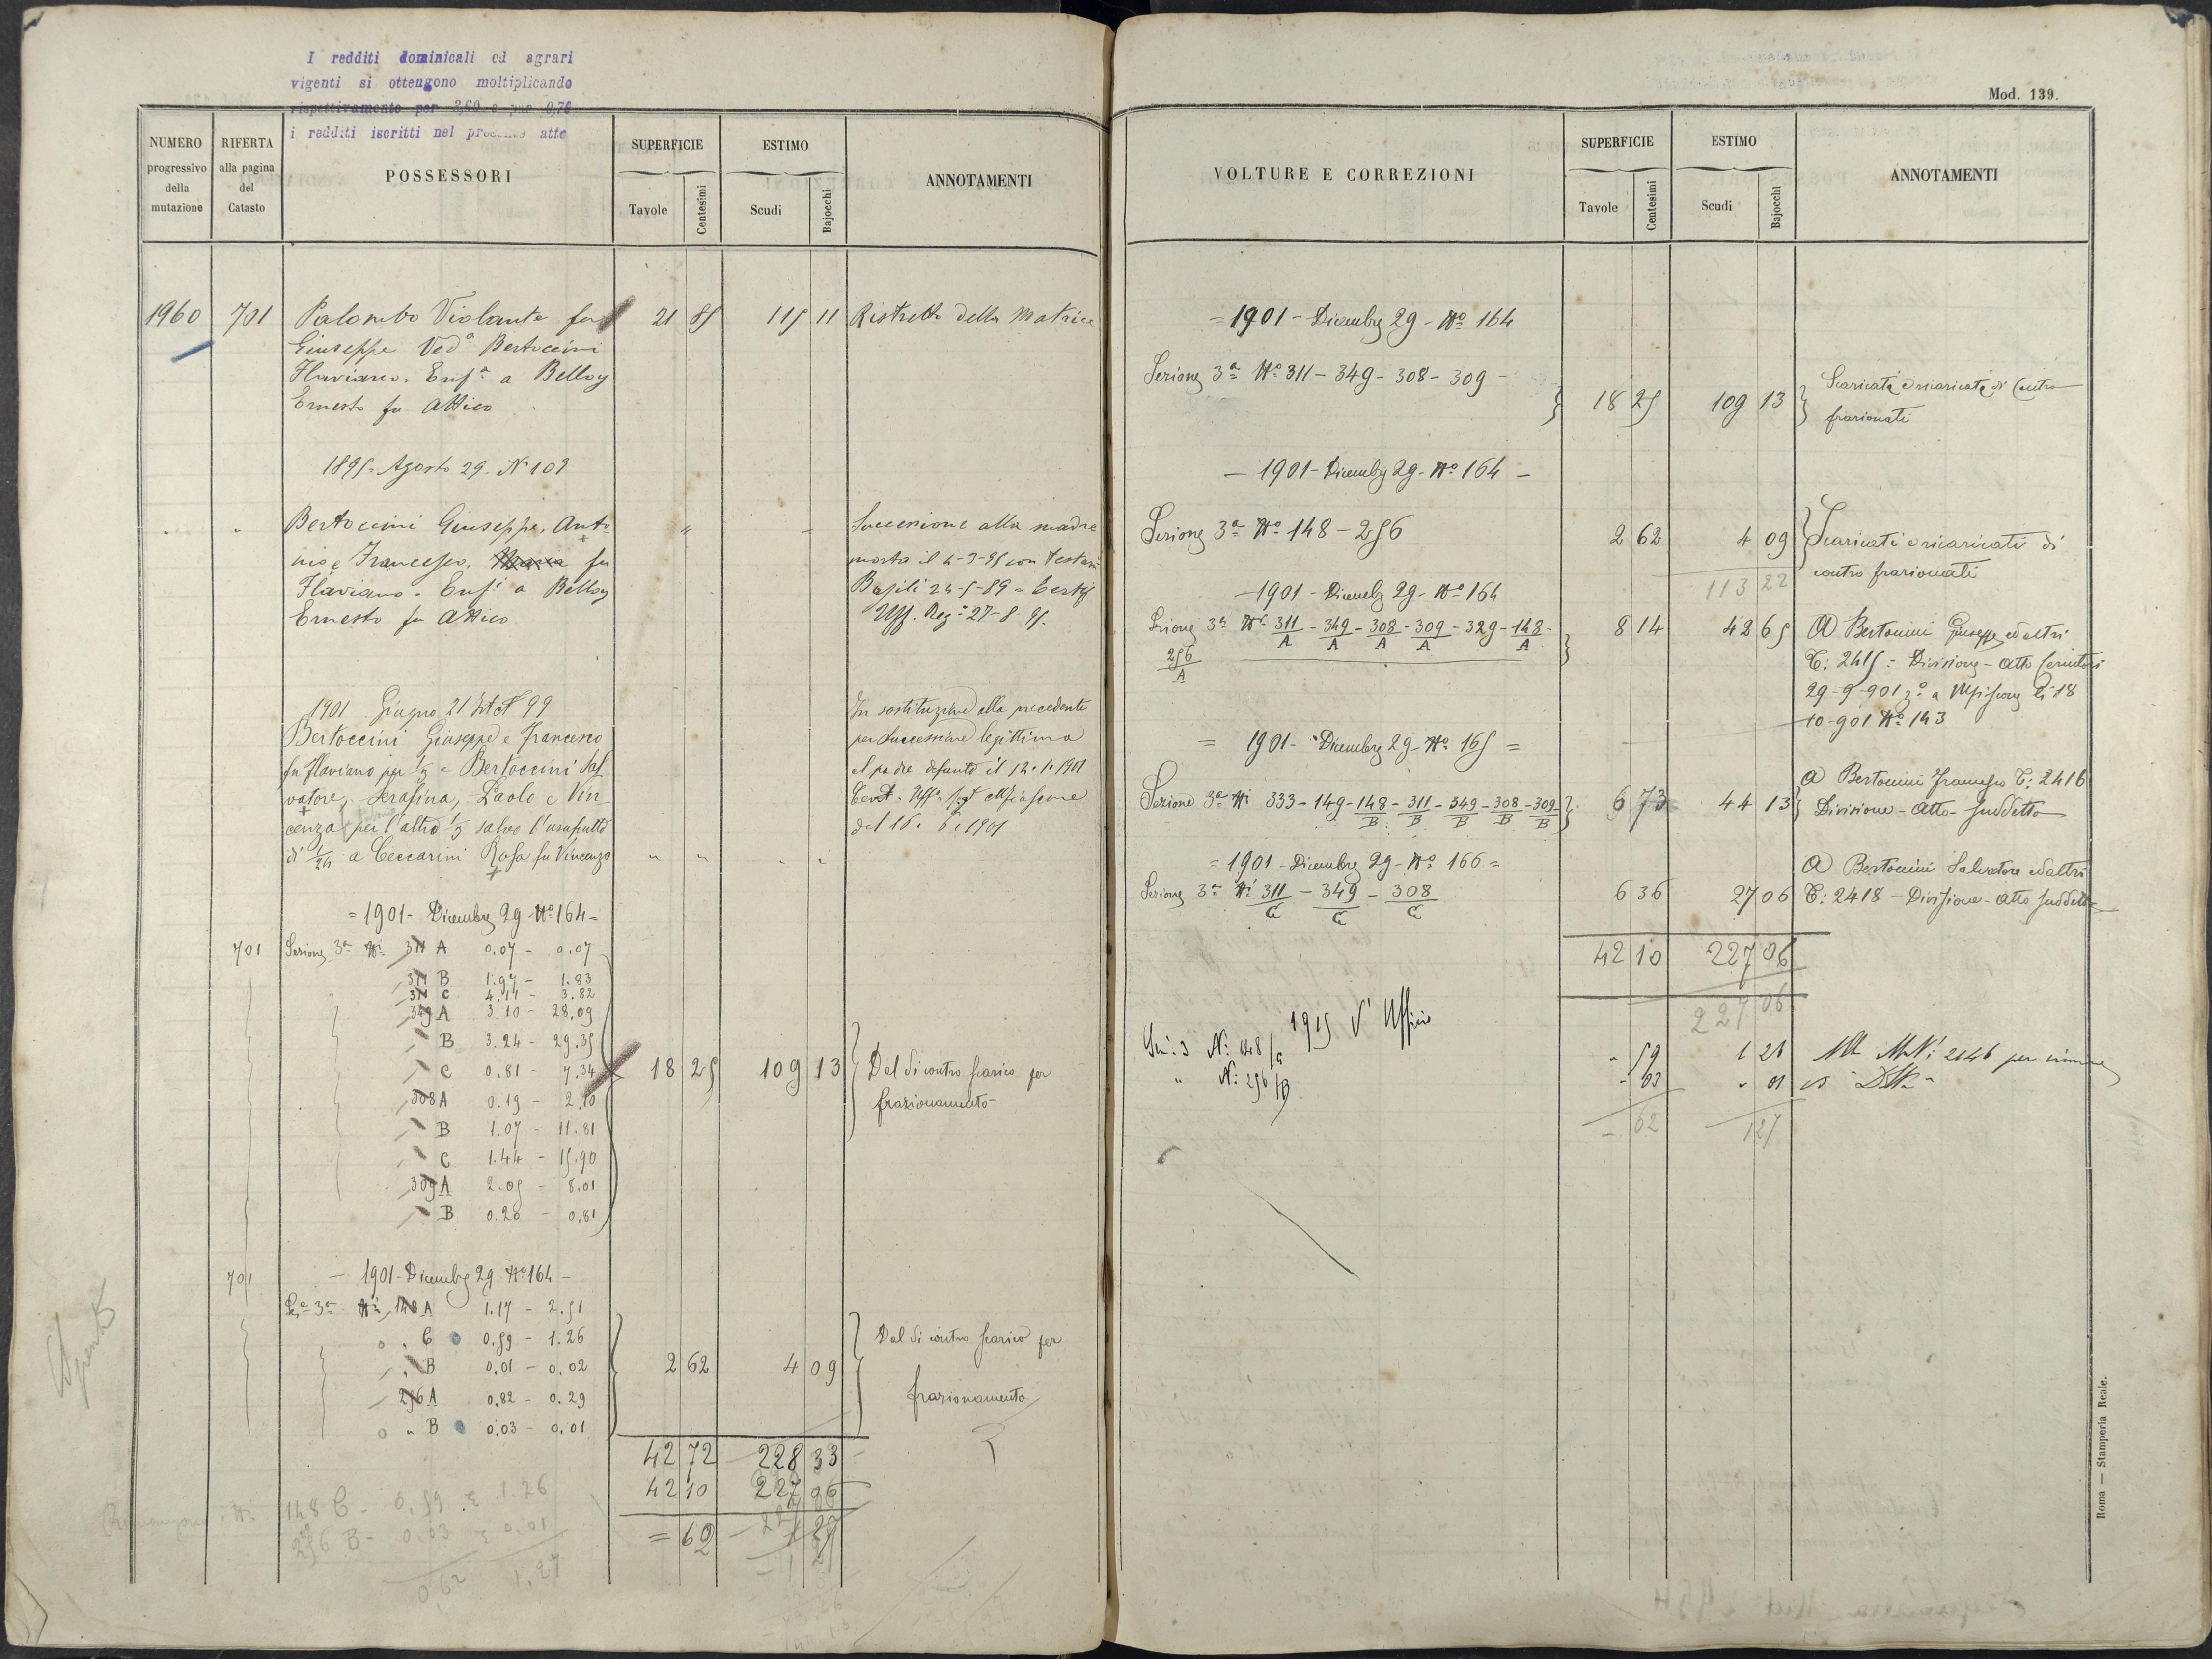 I redditi dominicali ed agrari
vigenti si ottengono moltiplicando
rispettivamente per 3,60 e per 0,70
i redditi iscritti nel presente atto
NUMERO
progressivo
della
mutazione
RIFERTA
alla pagina
del
Catasto
POSSESSORI
SUPERFICIE
Tavole
Centesimi
ESTIMO
Scudi
Bajocchi
ANNOTAMENTI
1960 701 Palombo Violante fu 21 85 115 11 Ristretto della Matrice
Giuseppe Ved.ª Bertoccini
Flaviano. Enf.ª a Belloy
Ernesto fu Attico
1895. Agosto 29. N 109
Bertoccini Giuseppe, Anto Successione alla madre
nio e Francesco, Maria fu morta il 4-3-95 con Testam.
Flaviano. Enf.i a Belloy Basili 24-5-89 = Certif.
Ernesto fu Attico Uff. Reg.º 27-8-95.
1901 Giugno 21 N 99 In sostituzione alla precedente
Bertoccini Giuseppe e Francesco per Successione legittima
fu Flaviano per 2/3 e Bertoccini Sal al padre defunto il 12.1.1901
vatore, Serafina, Paolo e Vin
cenza per l'altro 1/3 salvo l'usufrutto del 16. 6. 1901
di 1/24 a Ceccarini Rosa fu Vincenzo
= 1901 - Dicembre 29 - Nº 164 =
701 Sezione 3ª Ni 311 A 0.07 - 0.07
311 B 1.97 - 1.83
311 C 4.11 - 3.82
349 A 3.10 - 28.09
B 3.24 - 29.35
C 0.81 - 7.34 18 25 109 13 Del di contro scarico per
308 A 0.19 - 2.10 frazionamento
B 1.07 - 11.81
C 1.44 - 15.90
309 A 2.05 - 8.01
B 0.20 - 0.81
701 - 1901 - Dicembre 29 Nº 164 -
Se.e 3ª Ni 148 A 1.17 - 2.51
" C 0.59 - 1.26 Del di contro scarico per
" B 0.01 - 0.02 2 62 4 09
256 A 0.82 - 0.29 frazionamento
" B 0.03 - 0.01
42 72 228 33
42 10 227 06
= 62 1 27
Rimangono: Ni 148 C - 0.59 £ 1.26
256 B - 0.03 £ 0.01
0,62 1,27
Mod. 139.
VOLTURE E CORREZIONI
SUPERFICIE
Tavole
Centesimi
ESTIMO
Scudi
Bajocchi
ANNOTAMENTI
= 1901 - Dicembre 29 - Nº 164
Sezione 3ª Nº 311 - 349 - 308 - 309 -
18 25 109 13 Scaricati e ricaricati di contro
frazionati
- 1901 - Dicembre 29 - Nº 164 -
Sezione 3ª Nº 148 - 256 2 62 4 09 Scaricati e ricaricati di
113 22 contro frazionati
- 1901 - Dicembre 29 - Nº 164
Sezione 3ª Nº 311/A - 349/A - 308/A - 309/A - 329 - 148/A - 8 14 42 65 A Bertoccini Giuseppe ed altri
256/A T: 2415 = Divisione - Atto
29-9-901 a li 18
10-901 Nº 143
= 1901 - Dicembre 29 - Nº 165 =
A Bertoccini Francesco T: 2416
Sezione 3ª Ni 333 - 149 - 148/B - 311/B - 349/B - 308/B - 309/B 6 73 44 13 Divisione - Atto - suddetto
= 1901 - Dicembre 29 - Nº 166 =
A Bertoccini Salvatore ed altri
Sezione 3ª Ni 311/C - 349/C - 308/C 6 36 27 06 T: 2418 - Divisione - Atto suddetto
42 10 227 06
227 06
1915 d'Ufficio
Sez: 3 N: 148/C " 59 1 26
" N: 256/B " 03 " 01
- 62 1 27
Roma — Stamperia Reale.